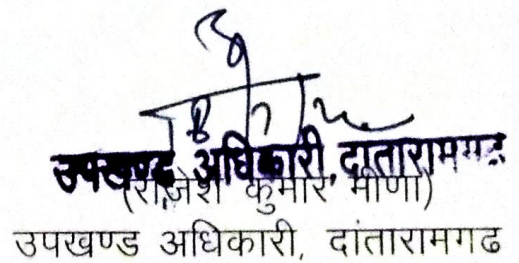 उपखण्ड अधिकारी, दांतारामगढ
(राजेश कुमार मीणा)
उपखण्ड अधिकारी, दांतारामगढ